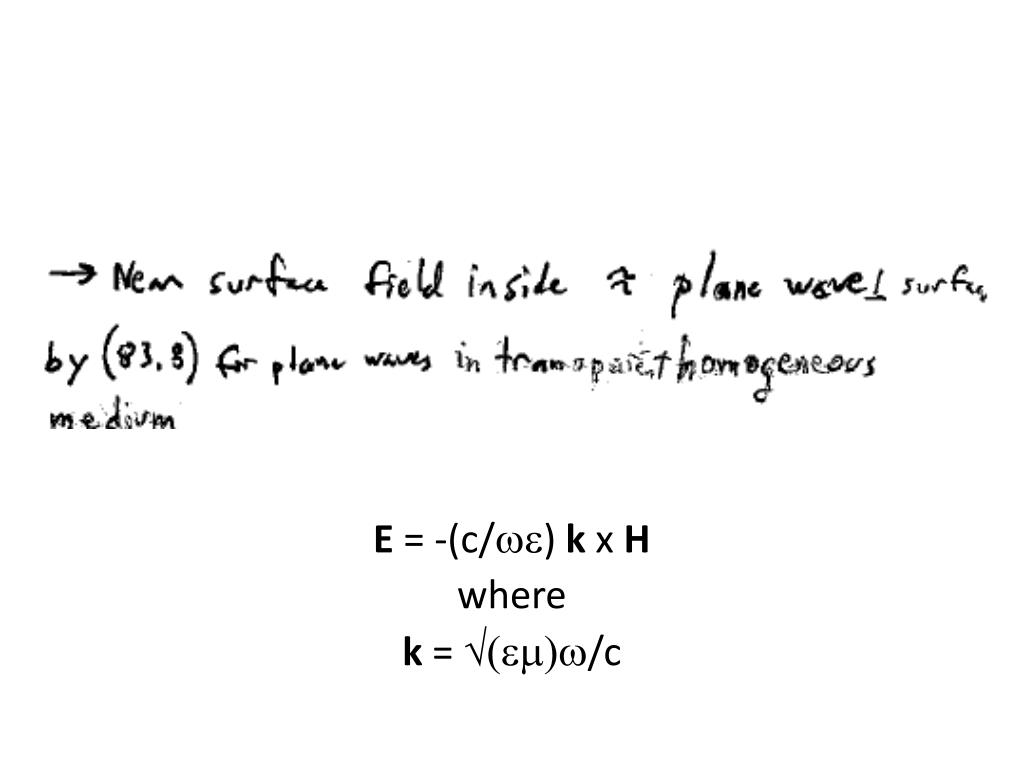 → Near surface field inside ≈ plane wave ⊥ surface
by (83.3) for plane waves in transparent homogeneous
medium
E = -(c/ωε) k x H
where
k = √(εμ)ω/c